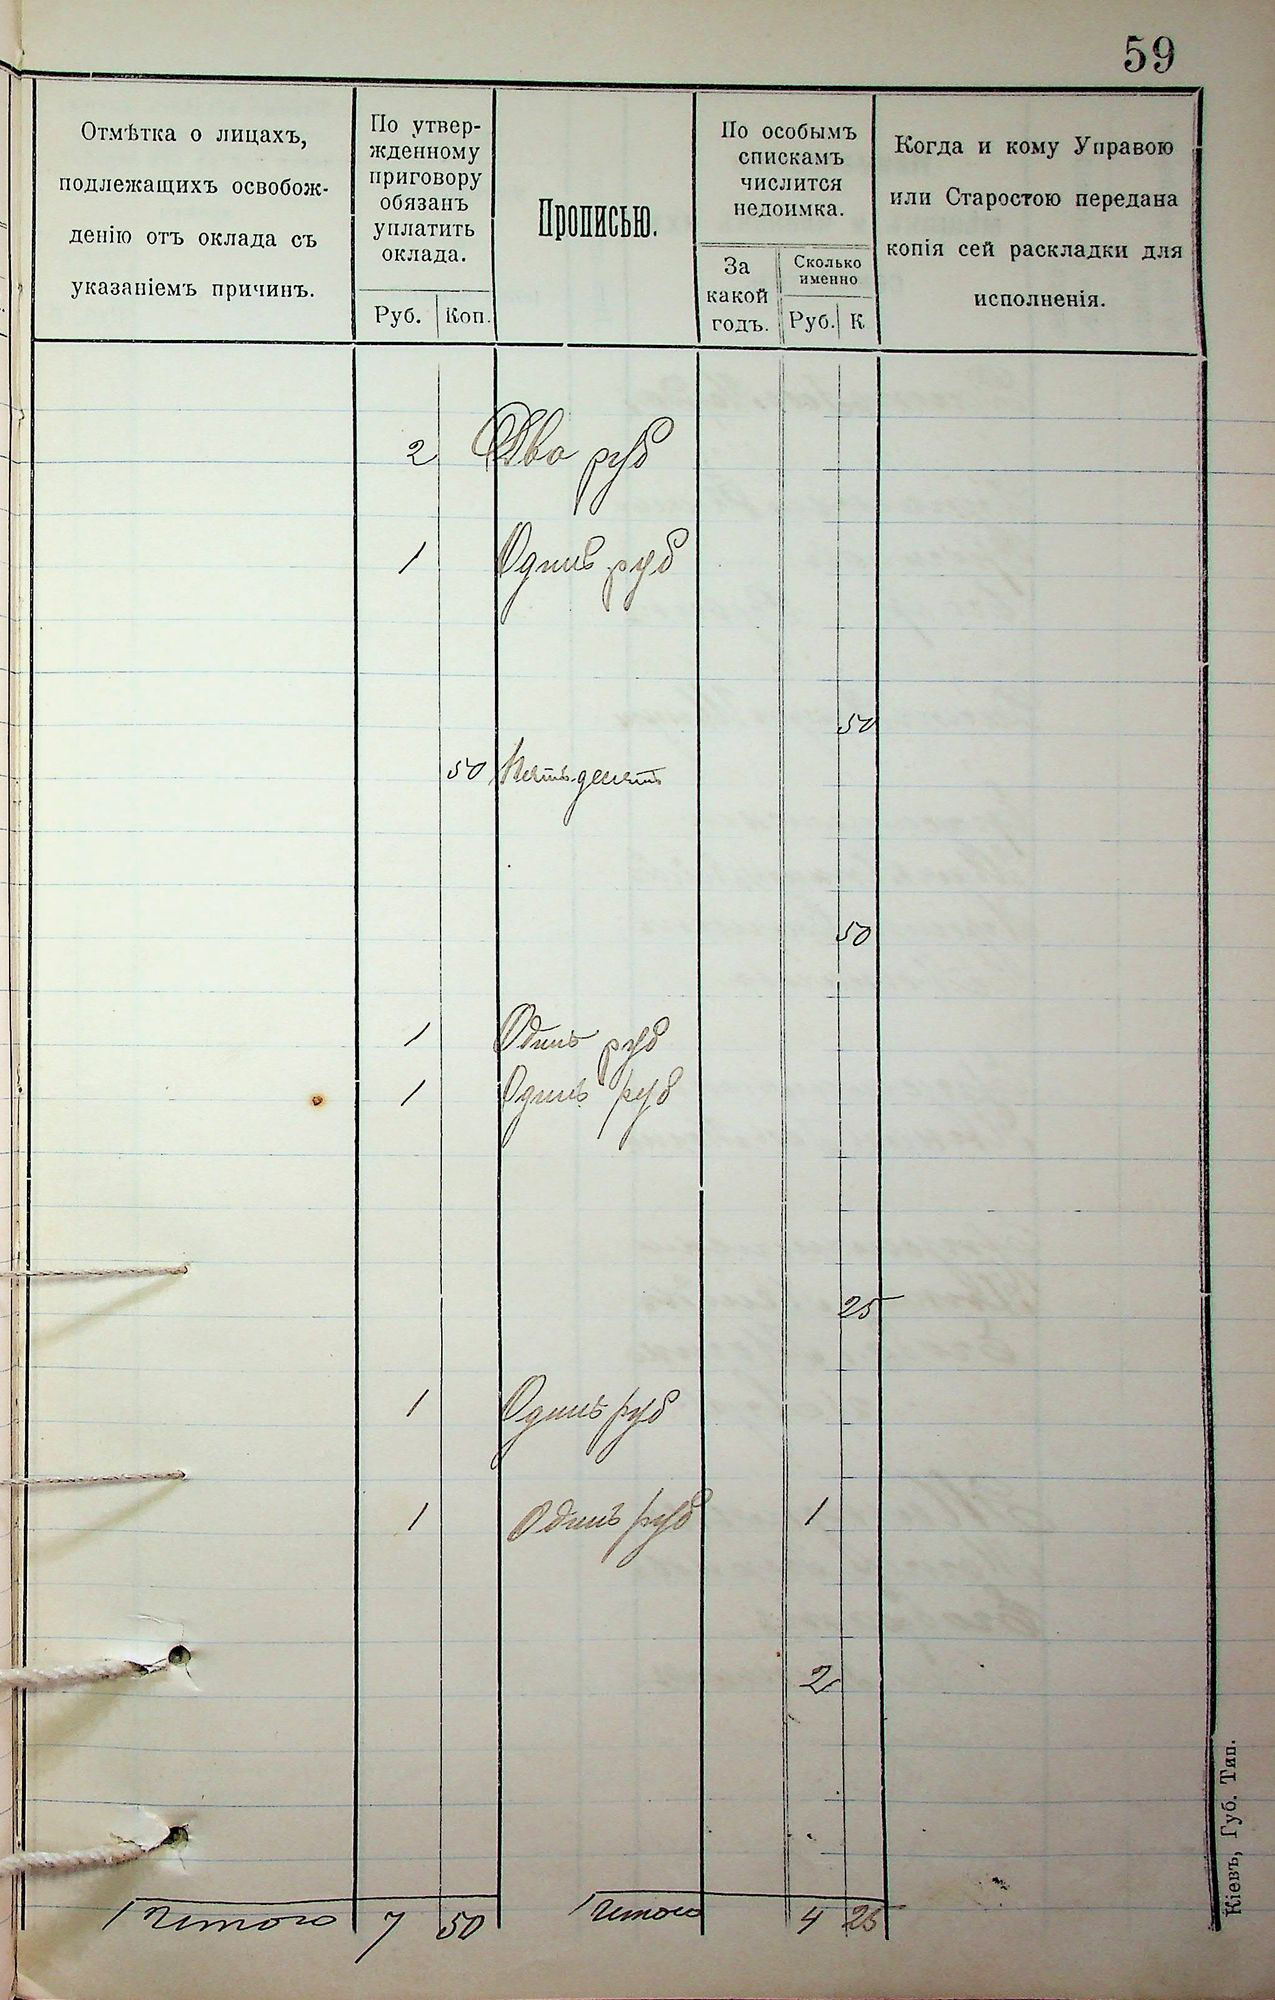 59
Отмѣтка о лицахъ,
подлежащихъ освобож-
денію отъ оклада съ
указаніемъ причинъ.
По утвер-
жденному
приговору
обязанъ
уплатить
оклада.
Руб. Коп.
Прописью.
По особымъ
спискамъ
числится
недоимка.
За
какой
годъ.
Сколько
именно
Руб. К.
Когда и кому Управою
или Старостою передана
копія сей раскладки для
исполненія.
2 Два руб
1 Одинъ руб
50
50 Пять-десять
50
1 Одинъ руб
1 Одинъ руб
25
1 Одинъ руб
1 Одинъ руб 1
2
Итого 7 50 Итого 4 25
Кіевъ, Губ. Тип.